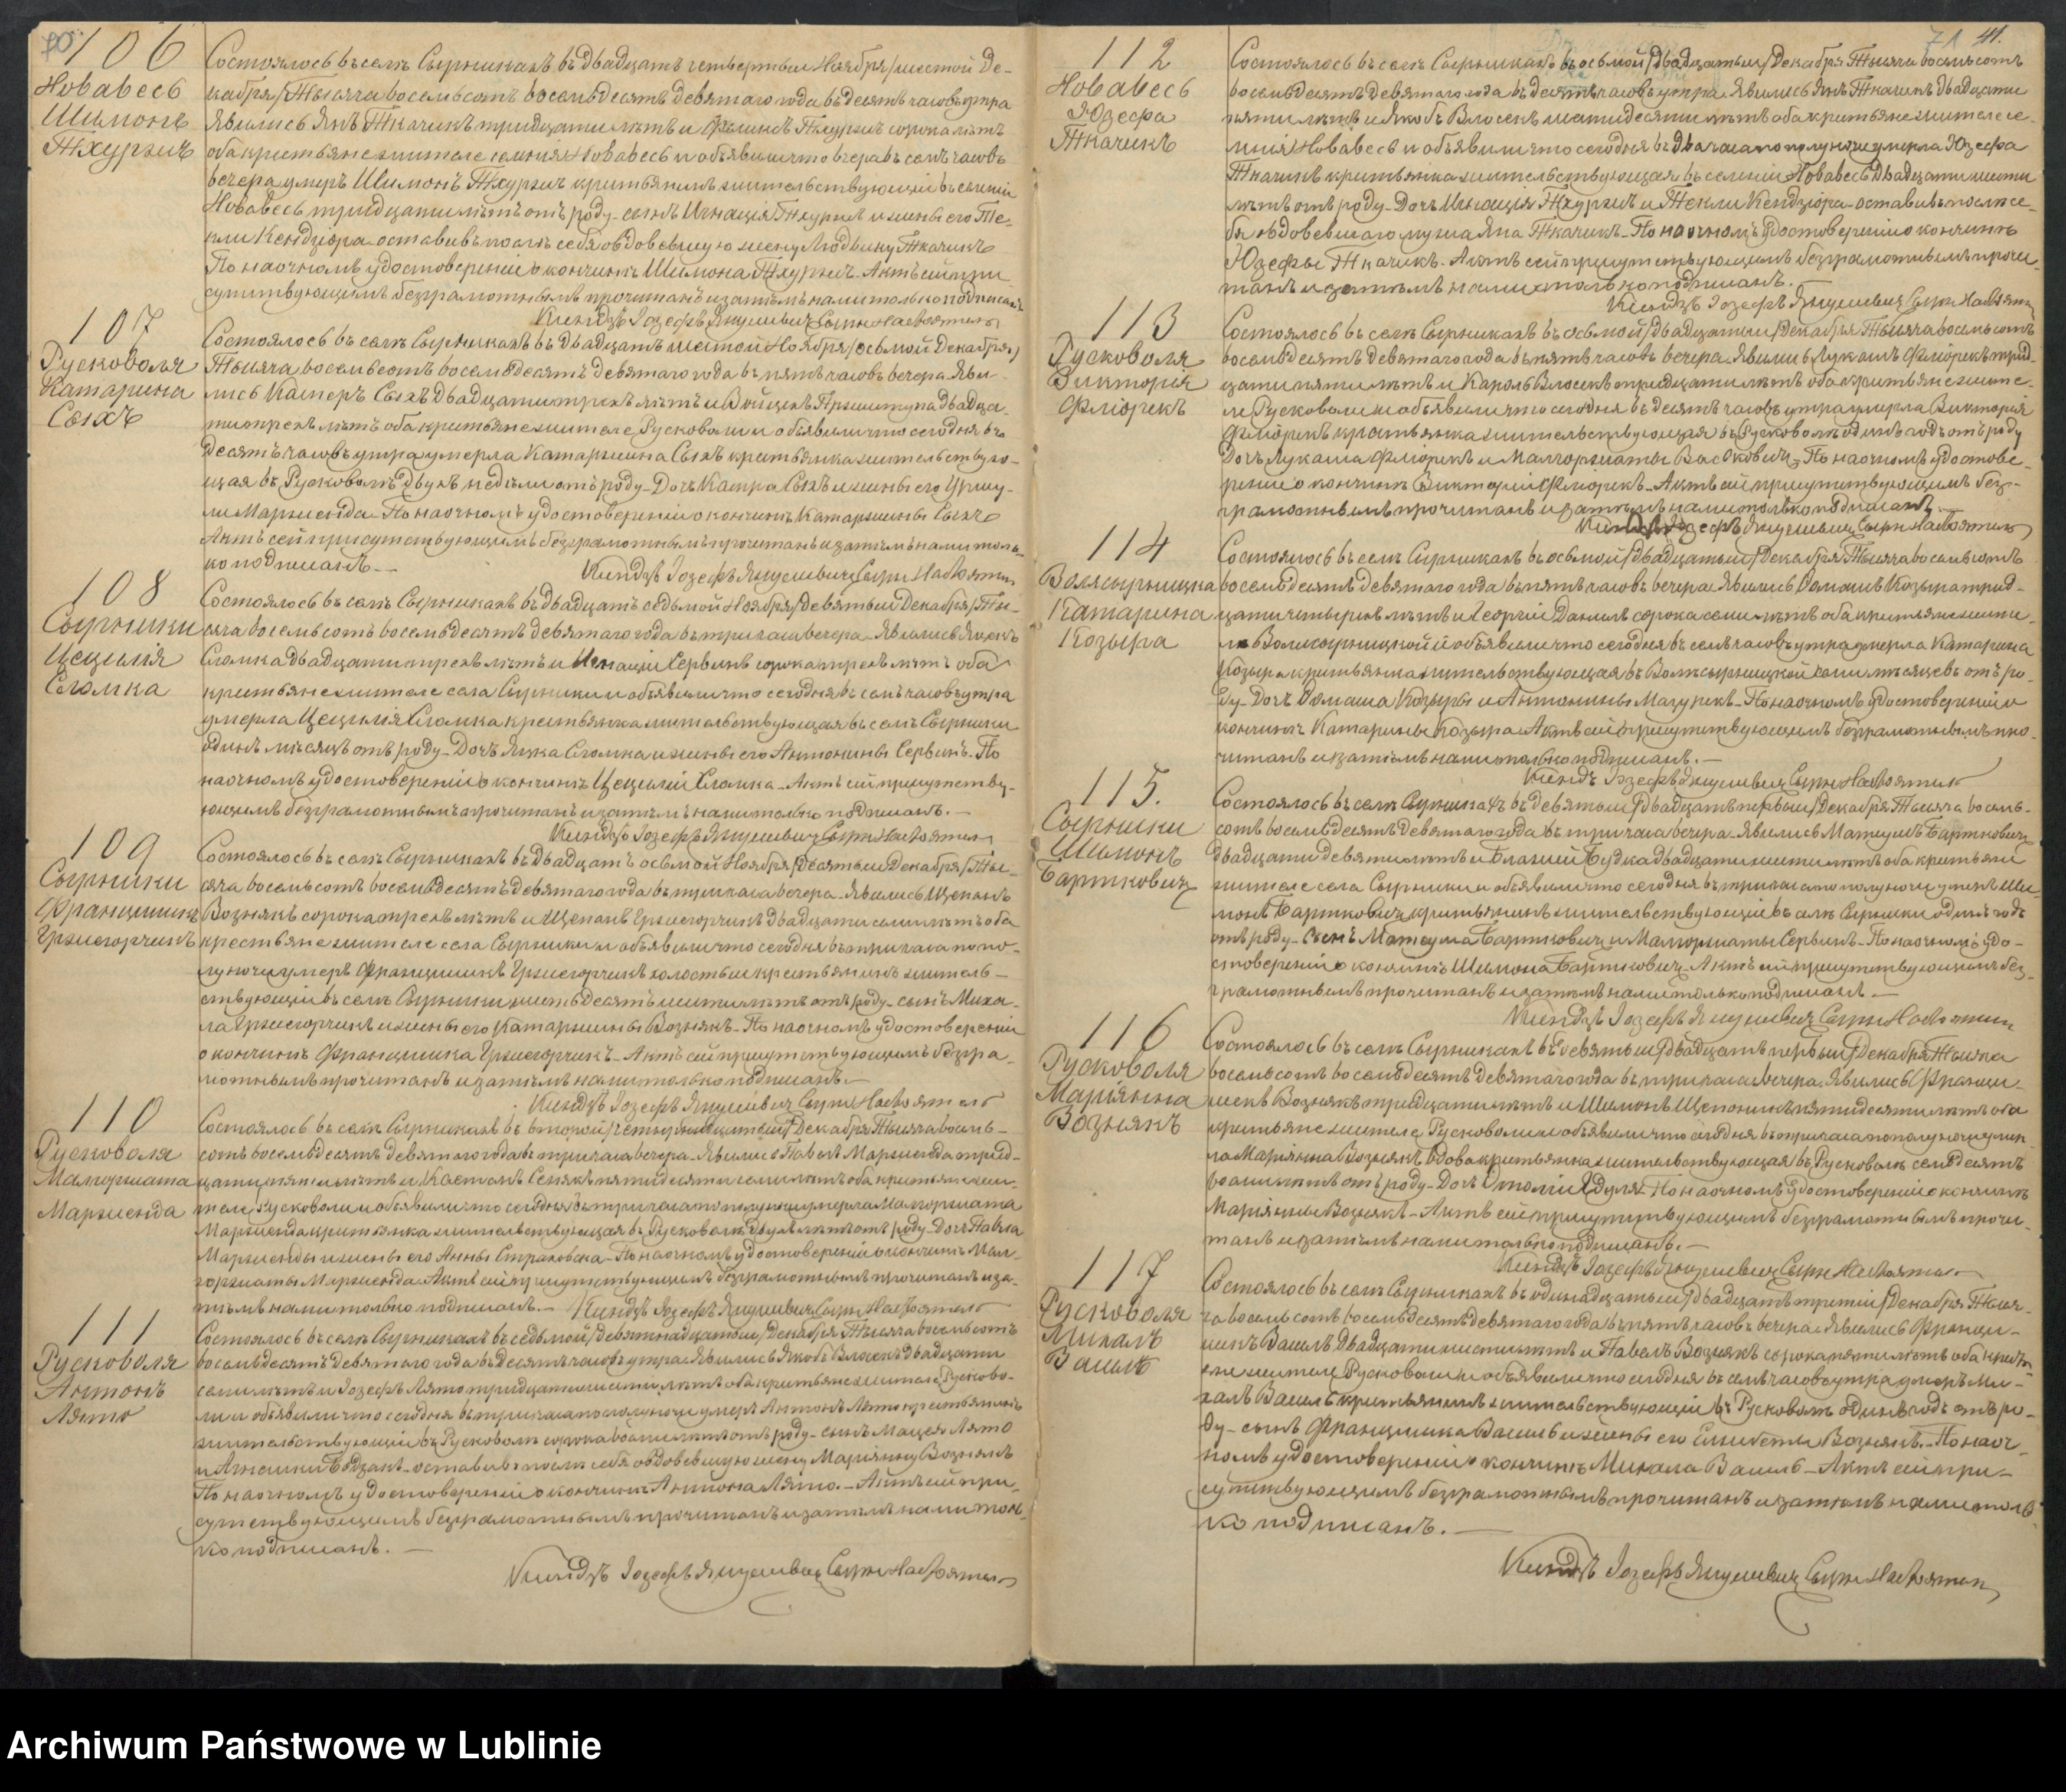 106
Новавесь
Шимонъ
Тхуржъ
Состоялось въ селѣ Сырникахъ въ двадцать четвертый Ноября/шестой Де-
кабря/Тысяча восемьсотъ восемьдесятъ девятаго года въ десять часовъ утра
Явились Янъ Ткачикъ тридцати лѣтъ и Тхуржъ сорока лѣтъ
оба крестьяне жители селенія Новавесь и объявили что вчера въ семь часовъ
вечера умеръ Шимонъ Тхуржъ крестьянинъ жительствующій въ селеніи
Новавесь тридцати лѣтъ отъ роду сынъ Игнація Тхуржъ и жены его Те-
кли Кендзіора оставивъ послѣ себя овдовевшую жену Людвику Ткачикъ
По наочномъ удостовереніи о кончинѣ Шимона Тхуржъ. Актъ сей при-
сутствующимъ безграмотнымъ прочитанъ и затѣмъ нами только подписанъ
Ксендзъ Іозефъ Янушевичъ Сырн Настоятель
107
Русковоля
Катаржина
Сьяхъ
Состоялось въ селѣ Сырникахъ въ двадцать шестой Ноября/осьмой Декабря/
Тысяча восемьсотъ восемьдесятъ девятаго года въ пять часовъ вечера Яви-
лись Каперъ двадцати трехъ лѣтъ и Войцехъ двадца-
ти трехъ лѣтъ оба крестьяне жители Русковоли и объявили что сегодня въ
десять часовъ утра умерла Катаржина крестьянка жительствую-
щая въ Русковолѣ двухъ недѣль отъ роду Дочь и жены его Уршу-
ли Маржиенда По наочномъ удостовереніи о кончинѣ Катаржины
Актъ сей присутствующимъ безграмотнымъ прочитанъ и затѣмъ нами толь-
ко подписанъ.
Ксендзъ Іозефъ Янушевичъ Сырн Настоятель
108
Сырники
Цецилія
Сломка
Состоялось въ селѣ Сырникахъ въ двадцать седьмой Ноября/девятый Декабря/Ты-
сяча восемьсотъ восемьдесятъ девятаго года въ три часа вечера Явились
Сломка двадцати трехъ лѣтъ и Игнацій Сервинъ сорока трехъ лѣтъ оба
крестьяне жители села Сырники и объявили что сегодня въ семь часовъ утра
умерла Цецилія Сломка крестьянка жительствующая въ селѣ Сырники
одинъ мѣсяцъ отъ роду Дочь Сломка и жены его Антонины Сервинъ. По
наочномъ удостовереніи о кончинѣ Цециліи Сломка Актъ сей присутству-
ющимъ безграмотнымъ прочитанъ и затѣмъ нами только подписанъ.
Ксендзъ Іозефъ Янушевичъ Сырн Настоятель
109
Сырники
Францишекъ
Гржегорчикъ
Состоялось въ селѣ Сырникахъ въ двадцать осьмой Ноября/десятый Декабря/Ты-
сяча восемьсотъ восемьдесятъ девятаго года въ три часа вечера Явились Щепанъ
Вознякъ сорока трехъ лѣтъ и Щепанъ Гржегорчикъ двадцати семи лѣтъ оба
крестьяне жители села Сырники и объявили что сегодня въ три часа попо-
луночи умеръ Францишекъ Гржегорчикъ холостый крестьянинъ житель-
ствующій въ селѣ Сырники шестьдесятъ шести лѣтъ отъ роду сынъ Миха-
ла Гржегорчикъ и жены его Катаржины Вознякъ По наочномъ удостовереніи
о кончинѣ Францишка Гржегорчикъ Актъ сей присутствующимъ безгра-
мотнымъ прочитанъ и затѣмъ нами только подписанъ.
Ксендзъ Іозефъ Янушевичъ Сырн Настоятель
110
Русковоля
Малгоржата
Маржиенда
Состоялось въ селѣ Сырникахъ въ второй/четырнадцатый/Декабря Тысяча восемь-
сотъ восемьдесятъ девятаго года въ три часа вечера Явились Павелъ Маржиенда трид-
цати лѣтъ и пятидесяти семи лѣтъ оба крестьяне жи-
тели Русковоли и объявили что сегодня въ три часа пополуночи умерла Малгоржата
Маржиенда крестьянка жительствующая въ Русковолѣ двухъ лѣтъ отъ роду Дочь Павла
Маржиенды и жены его Анны По наочномъ удостовереніи о кончинѣ Мал-
горжаты Маржиенда Актъ сей присутствующимъ безграмотнымъ прочитанъ и за-
тѣмъ нами только подписанъ. Ксендзъ Іозефъ Янушевичъ Сырн Настоятель
111
Русковоля
Антонъ
Лято
Состоялось въ селѣ Сырникахъ въ седьмой/девятнадцатый/Декабря Тысяча восемьсотъ
восемьдесятъ девятаго года въ десять часовъ утра Явились Якобъ Влосекъ двадцати
семи лѣтъ и Іозефъ Лято тридцати шести лѣтъ оба крестьяне жители Русково-
ли и объявили что сегодня въ три часа пополуночи умеръ Антонъ Лято крестьянинъ
жительствующій въ Русковолѣ сорока восьми лѣтъ отъ роду сынъ Мацея Лято
и Агнешки оставивъ послѣ себя овдовевшую жену Маріянну Вознякъ
По наочномъ удостовереніи о кончинѣ Антона Лято. Актъ сей при-
сутствующимъ безграмотнымъ прочитанъ и затѣмъ нами толь-
ко подписанъ.
Ксендзъ Іозефъ Янушевичъ Сырн Настоятель
71 41.
112
Новавесь
Юзефа
Ткачикъ
Состоялось въ селѣ Сырникахъ въ осьмой/двадцатый/Декабря Тысяча восемьсотъ
восемьдесятъ девятаго года въ десять часовъ утра Явились Янъ Ткачикъ двадцати
пяти лѣтъ и Якобъ Влосекъ шестидесяти лѣтъ оба крестьяне жители се-
ленія Новавесь и объявили что сегодня въ два часа пополуночи умерла Юзефа
Ткачикъ крестьянка жительствующая въ селеніи Новавесь двадцати шести
лѣтъ отъ роду Дочь Игнація Тхуржъ и Текли Кендзіора оставивъ послѣ се-
бя овдовевшаго мужа Яна Ткачикъ По наочномъ удостовереніи о кончинѣ
Юзефы Ткачикъ. Актъ сей присутствующимъ безграмотнымъ прочи-
танъ и затѣмъ нами только подписанъ.
Ксендзъ Іозефъ Янушевичъ Сырн Настоятель
113
Русковоля
Викторія
Флюрекъ
Состоялось въ селѣ Сырникахъ въ осьмой/двадцатый/Декабря Тысяча восемьсотъ
восемьдесятъ девятаго года въ пять часовъ вечера Явились Лукашъ Флюрекъ трид-
цати пяти лѣтъ и Кароль Влосекъ тридцати лѣтъ оба крестьяне жите-
ли Русковоли и объявили что сегодня въ десять часовъ утра умерла Викторія
Флюрекъ крестьянка жительствующая въ Русковолѣ одинъ годъ отъ роду
Дочь Лукаша Флюрекъ и Малгоржаты Васькевичъ По наочномъ удостове-
реніи о кончинѣ Викторіи Флюрекъ Актъ сей присутствующимъ без-
грамотнымъ прочитанъ и затѣмъ нами только подписанъ.
Ксендзъ Іозефъ Янушевичъ Сырн Настоятель
114
Волясырницка
Катарина
Козыра
Состоялось въ селѣ Сырникахъ въ осьмой/двадцатый/Декабря Тысяча восемьсотъ
восемьдесятъ девятаго года въ пять часовъ вечера Явились Томашъ Козыра трид-
цати четырехъ лѣтъ и Георгій сорока семи лѣтъ оба крестьяне жите-
ли Волисырницкой и объявили что сегодня въ семь часовъ утра умерла Катарина
Козыра крестьянка жительствующая въ Волѣсырницкой семи мѣсяцевъ отъ ро-
ду Дочь Томаша Козыры и Антонины Мазурекъ По наочномъ удостовереніи о
кончинѣ Катарины Козыра Актъ сей присутствующимъ безграмотнымъ про-
читанъ и затѣмъ нами только подписанъ.
Ксендзъ Іозефъ Янушевичъ Сырн Настоятель
115.
Сырники
Шимонъ
Бартковичъ
Состоялось въ селѣ Сырникахъ въ девятый/двадцать первый/Декабря Тысяча восемь-
сотъ восемьдесятъ девятаго года въ три часа вечера Явились Матеушъ Бартковичъ
двадцати девяти лѣтъ и Блажей Будка двадцати шести лѣтъ оба крестьяне
жители села Сырники и объявили что сегодня въ три часа пополуночи умеръ Ши-
монъ Бартковичъ крестьянинъ жительствующій въ селѣ Сырники одинъ годъ
отъ роду Сынъ Матеуша Бартковичъ и Малгоржаты Сервинъ По наочномъ удо-
стовереніи о кончинѣ Шимона Бартковичъ Актъ сей присутствующимъ без-
грамотнымъ прочитанъ и затѣмъ нами только подписанъ.
Ксендзъ Іозефъ Янушевичъ Сырн Настоятель
116
Русковоля
Маріянна
Вознякъ
Состоялось въ селѣ Сырникахъ въ девятый/двадцать первый/Декабря Тысяча
восемьсотъ восемьдесятъ девятаго года въ три часа вечера Явились Франци-
шекъ Вознякъ тридцати лѣтъ и Шимонъ пятидесяти лѣтъ оба
крестьяне жители Русковоли и объявили что сегодня въ три часа пополуночи умер-
ла Маріянна Вознякъ вдова крестьянка жительствующая въ Русковолѣ семьдесятъ
восьми лѣтъ отъ роду Дочь По наочномъ удостовереніи о кончинѣ
Маріянны Вознякъ Актъ сей присутствующимъ безграмотнымъ прочи-
танъ и затѣмъ нами только подписанъ.
Ксендзъ Іозефъ Янушевичъ Сырн Настоятель
117
Русковоля
Михалъ
Состоялось въ селѣ Сырникахъ въ одинадцатый/двадцать третій/Декабря Тыся-
ча восемьсотъ восемьдесятъ девятаго года въ пять часовъ вечера Явились Франци-
шекъ двадцати шести лѣтъ и Павелъ Вознякъ сорока пяти лѣтъ оба кресть-
яне жители Русковоли и объявили что сегодня въ семь часовъ утра умеръ Ми-
халъ крестьянинъ жительствующій въ Русковолѣ одинъ годъ отъ ро-
ду сынъ Францишка и жены его Вознякъ. По наоч-
номъ удостовереніи о кончинѣ Михала Актъ сей при-
сутствующимъ безграмотнымъ прочитанъ и затѣмъ нами толь-
ко подписанъ.
Ксендзъ Іозефъ Янушевичъ Сырн Настоятель
Archiwum Państwowe w Lublinie